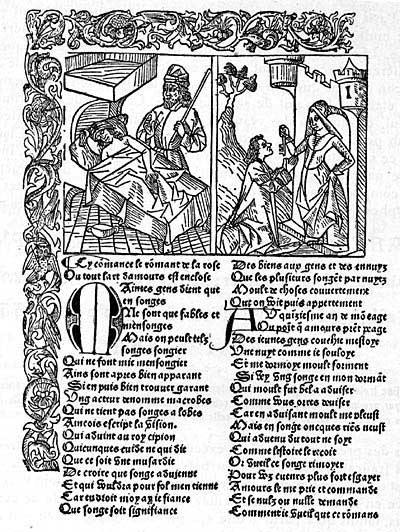 Cy cõmance le rõmant de la rose
Ou tout lart damours est enclose
Maintes gens dient que
en songes
Ne sont que fables et
mensonges
Mais on peult telz
songes songier
Qui ne sont mie mensongier
Ains sont apres bien apparant
Si en puis bien trouver garant
Ung acteur renomme macrobes
Qui ne tient pas songes a lobes
Aincois escript la vision
Qui advint au roy cipion
Quicunques cuide ne qui die
Que ce soit une musardie
De croire que songe adviengne
Et qui vouldra pour fol men tienne
Car endroit moy ay ie fiance
Que songe soit signifiance
Des biens aux gens et des ennuyz
Que les plusieurs songẽt par nuytz
Moult de choses couvertement
Quon voit puis appertement
Au quiziesme an de mõ eage
Ou point que amours prẽt peage
Des ieunes gens couchie mestoye
Une nuyt comme ie souloye
Et me dormoye moult forment
Si vy ung songe en mon dormãt
Qui moult fut bel a adviser
Comme vous orrez deviser
Car en advisant moult me pleust
Mais en songe oncques riẽs neust
Qui advenu du tout ne soye
Comme listoire le recoit
Or vueil ce songe rimoyer
Pour voz cueurs plus fort esgayer
Amours le me prie et commande
Et se nulz ou nulle demande
Comment ie vueil que ce rõmans